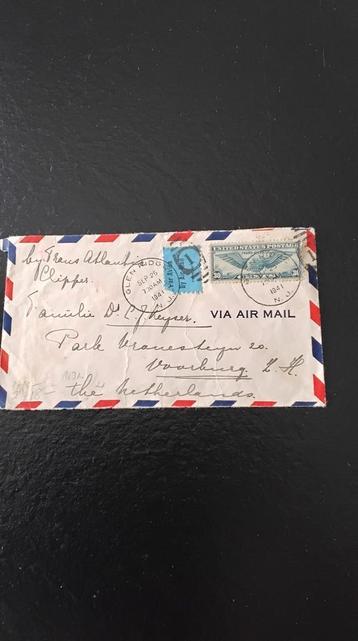 by Trans Atlantic
Clipper.
GLEN RIDGE
SEP 25
730AM
1941
N.J.
UNITED STATES POSTAGE
1941
N.J.
Familie Dr. C. J. Keyser.
VIA AIR MAIL
Park Vronesteyn 20.
Voorburg Z.H.
the Netherlands.